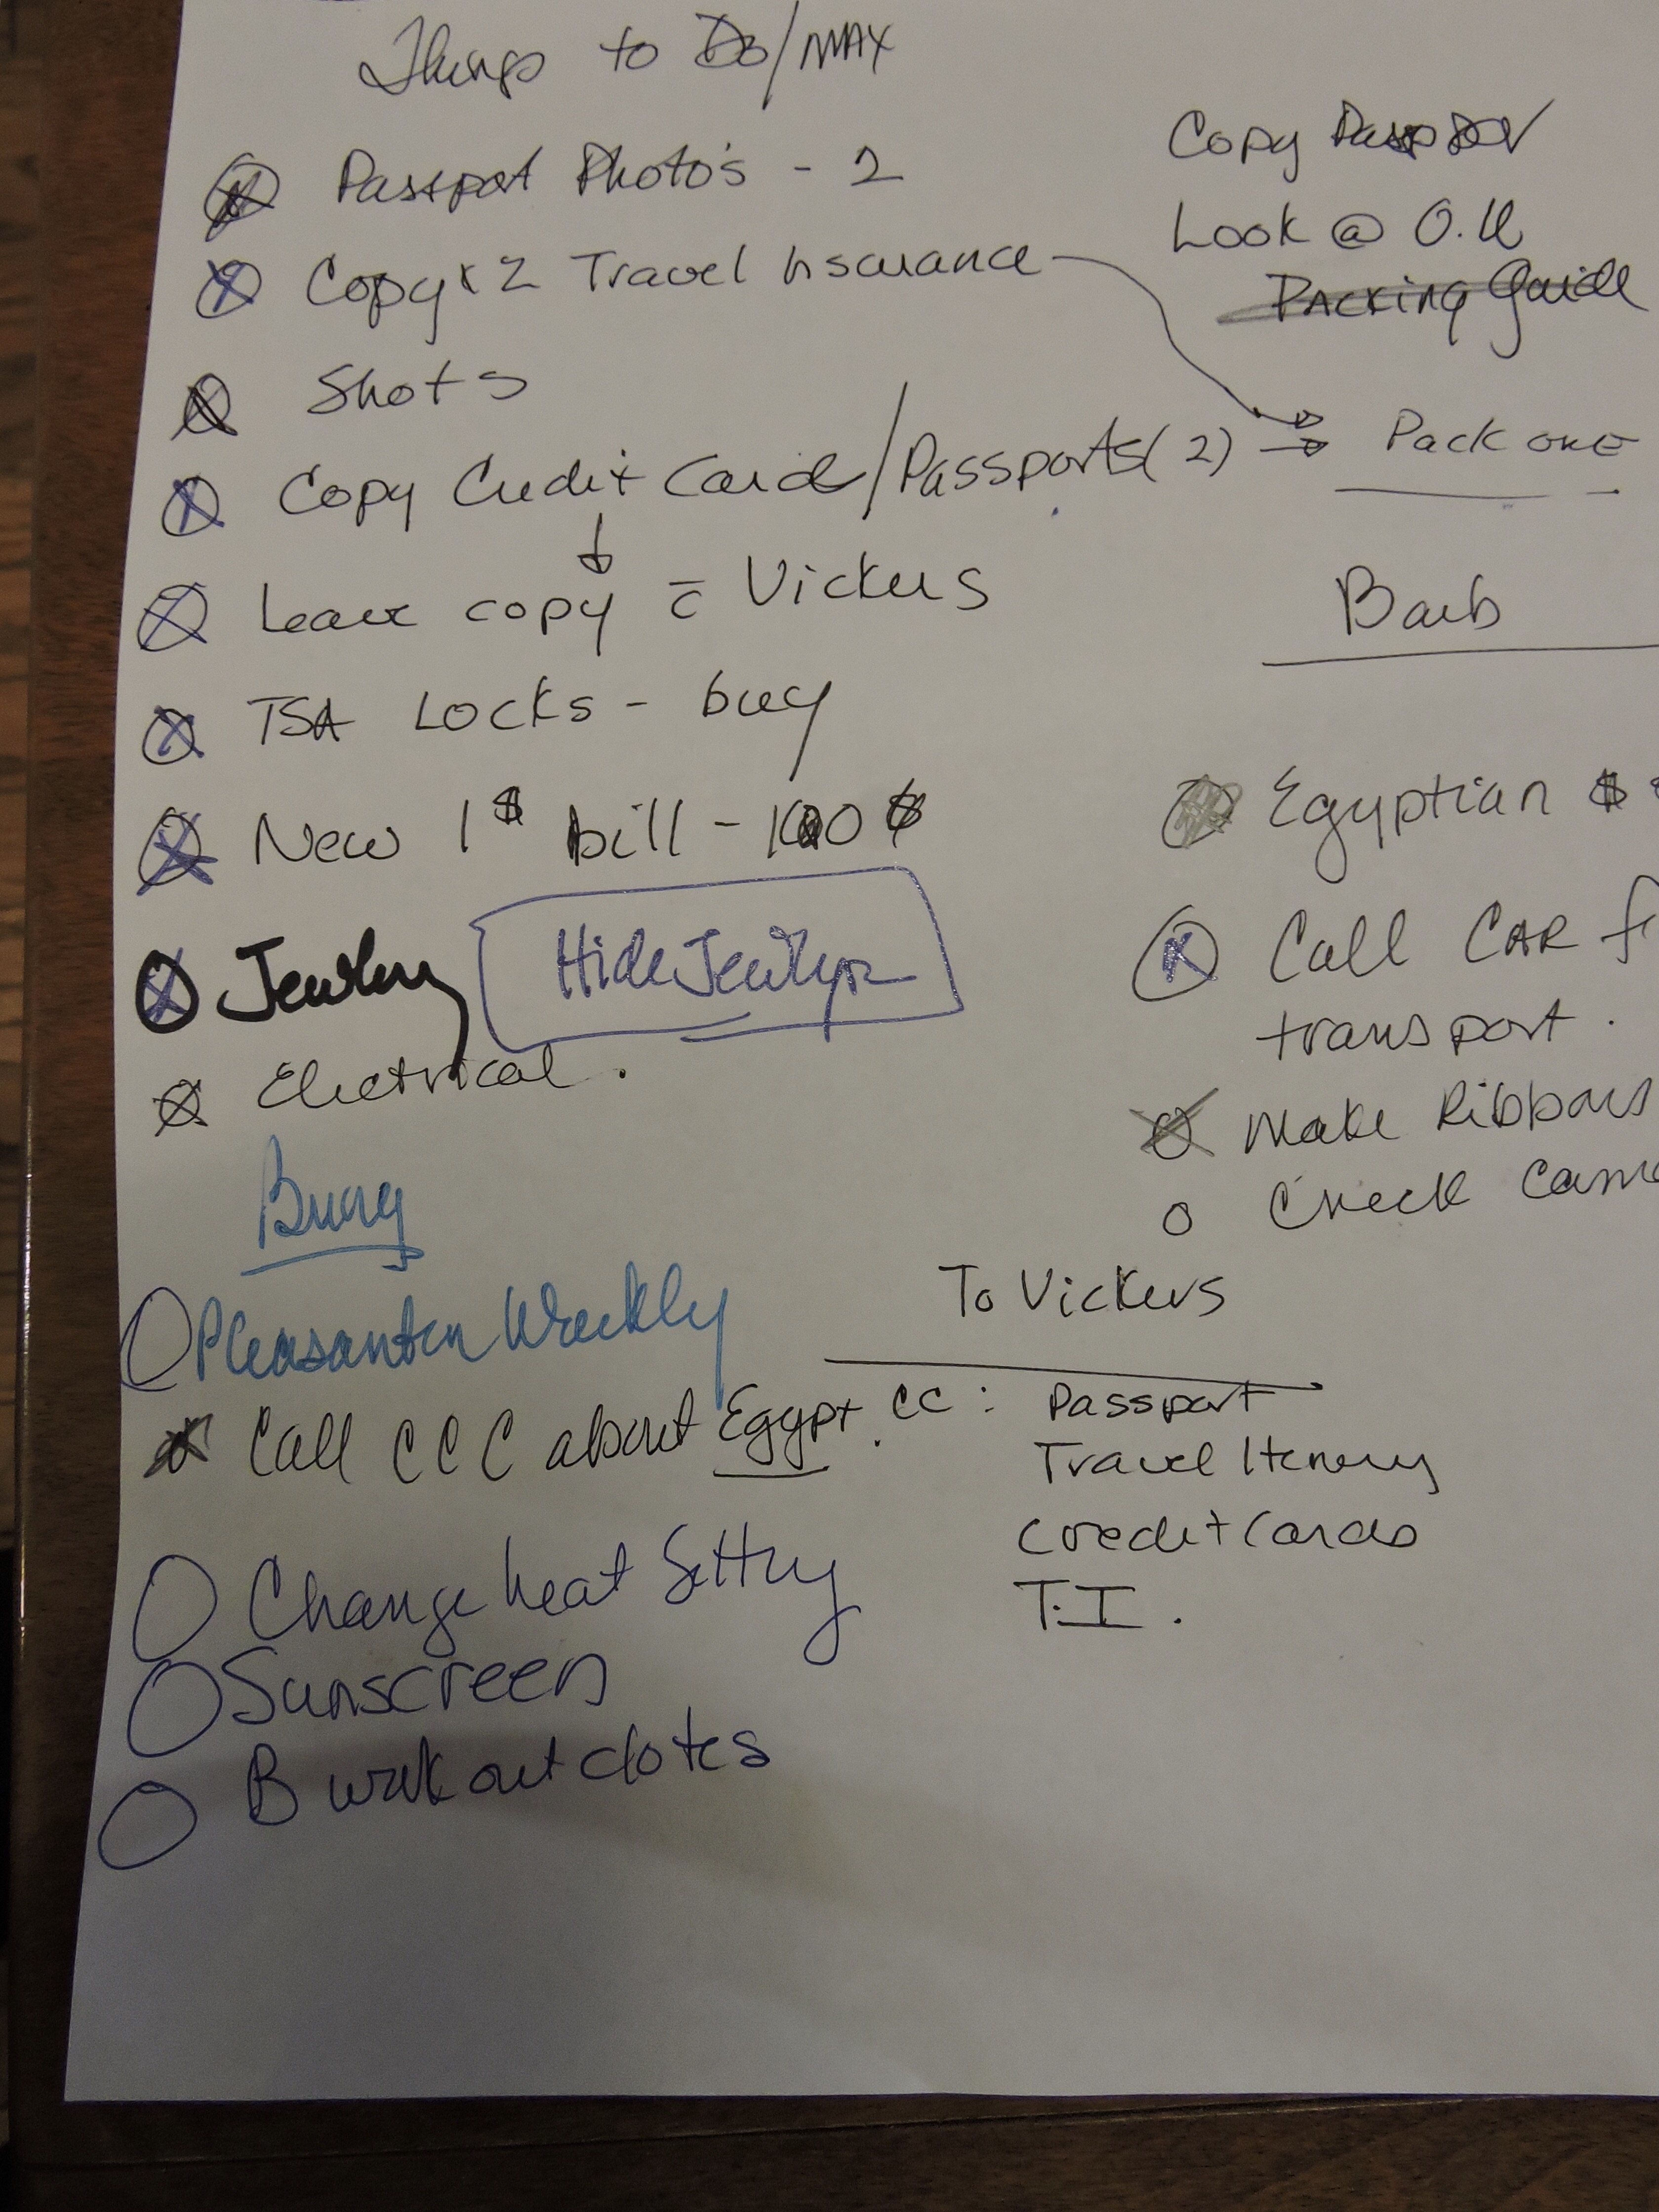 Things to Do/MAX
Passport Photo's - 2
Copy x 2 Travel Insurance
Shots
Copy Credit Card/Passports(2) → Pack one
Leave copy c̄ Vickers
TSA Locks - buy
New 1$ bill - 100 $
Jewlery
Hide Jewlry
Electrical.
Copy
Look @
Packing Guide
Barb
Egyptian $
Call CAR
transport.
Make Ribbons
Check
Pleasanton Weekly
Call CCC about Egypt. CC:
Change heat Setting
Sunscreen
B workout clotes
To Vickers
Passport
Travel Itenery
Credit Cards
T.I.